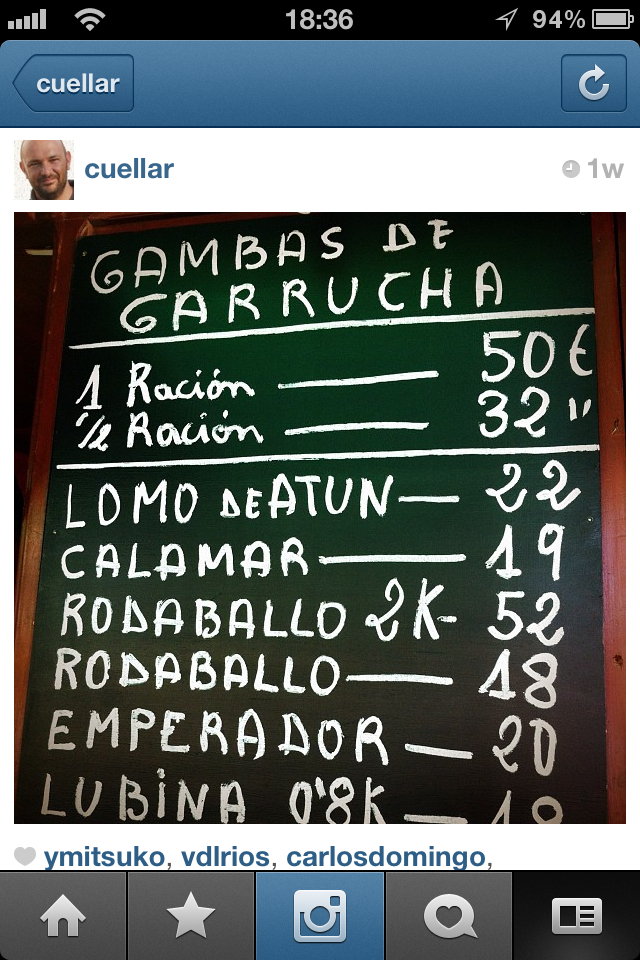 18:36
94%
cuellar
cuellar
1w
GAMBAS DE
GARRUCHA
1 Ración — 50€
½ Ración — 32 "
LOMO DE ATUN — 22
CALAMAR — 19
RODABALLO 2K- 52
RODABALLO — 18
EMPERADOR — 20
LUBINA 0'8K —
ymitsuko, vdlrios, carlosdomingo,